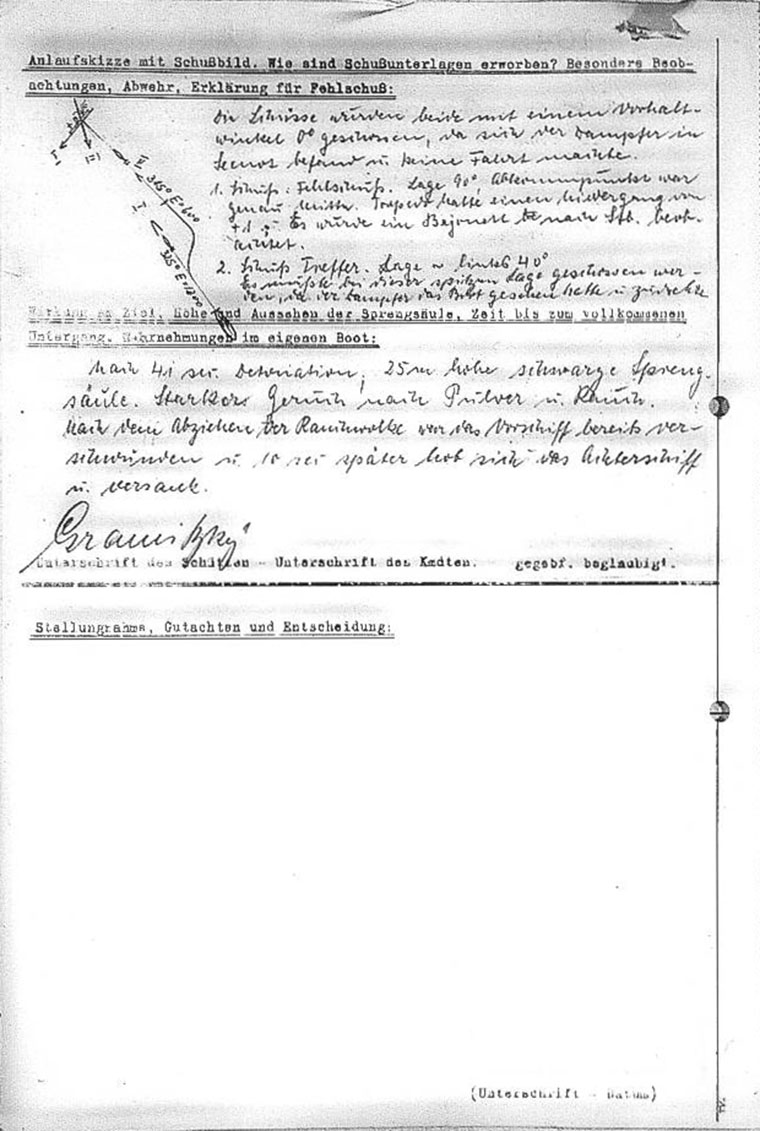 Anlaufskizze mit Schußbild. Wie sind Schußunterlagen erworben? Besondere Beob-
achtungen, Abwehr, Erklärung für Fehlschuß:
Die Schüsse wurden beide mit einem Vorhalt-
winkel 0° geschossen, da sich der Dampfer in
Seenot befand u. keine Fahrt machte.
1. Schuß: Fehlschuß. Lage 90°, Abkommpunkt war
genau Mitte. Torpedo hatte einen Niedergang von
+1. Es würde ein Bajonett nach Stb. beob-
achtet.
2. Schuß Treffer. Lage links 40°
Es mußte bei dieser spitzen Lage geschossen wer-
den, da der Dampfer das Boot gesehen hatte u.
I
II
II 315° E=600
I
315° E=1200
Wirkung am Ziel, Höhe und Aussehen der Sprengsäule, Zeit bis zum vollkommenen
Untergang. Wahrnehmungen im eigenen Boot:
Nach 41 sec. Detoniation, 25m hohe schwarze Spreng-
säule. Starker Geruch nach Pulver u. Rauch.
Nach dem Abziehen der Rauchwolke war das Vorschiff bereits ver-
schwunden u. 10 sec später hob sich das Achterschiff
u. versank.
Unterschrift des Schützen - Unterschrift des Kmdten. gegebf. beglaubigt.
Stellungnahme, Gutachten und Entscheidung:
(Unterschrift - Datum)